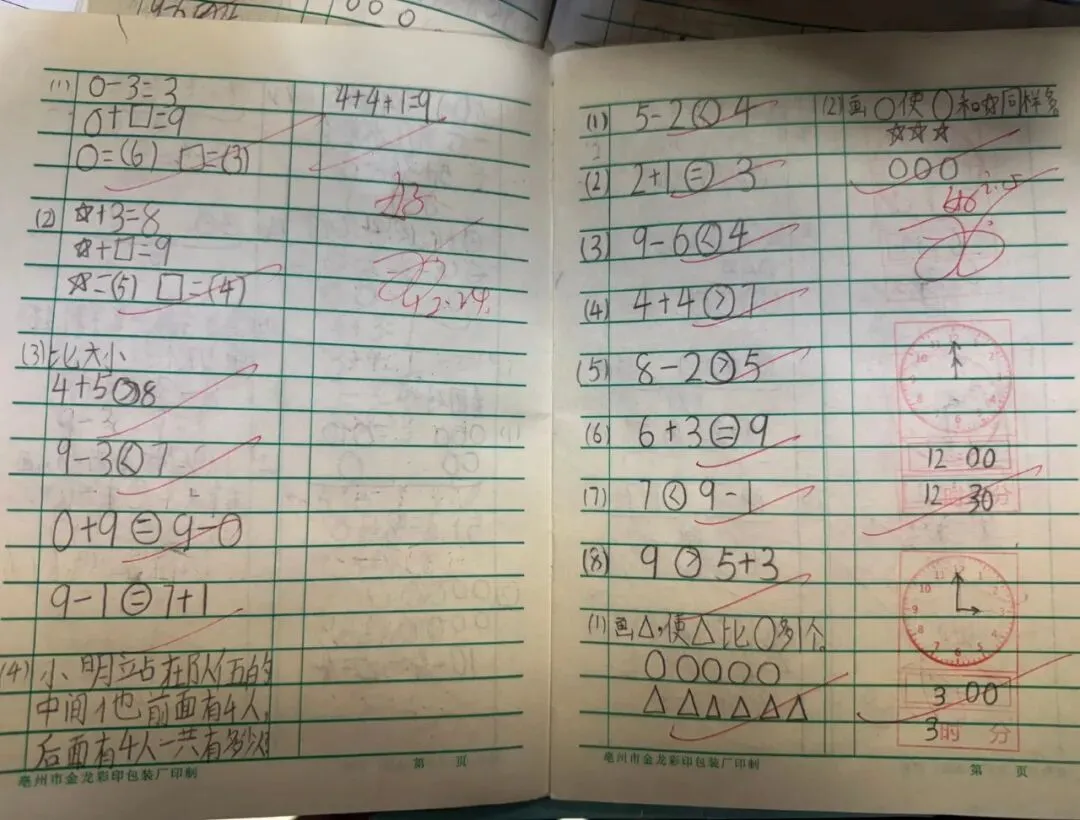 (1) 0-3=3
0+□=9
0=(6) □=(3)
(2) ☆+3=8
☆+□=9
☆=(5) □=(4)
(3)比大小
4+5>8
9-3
9-3<7
0+9=9-0
9-1=7+1
(4)小明站在队伍的
中间他前面有4人,
后面有4人一共有多少人
亳州市金龙彩印包装厂印制
4+4+1=9
第 页
(1) 5-2<4
(2) 2+1=3
(3) 9-6<4
(4) 4+4>7
(5) 8-2>5
(6) 6+3=9
(7) 7<9-1
(8) 9>5+3
(1)画△,使△比○多1个。
○○○○○
△△△△△△
亳州市金龙彩印包装厂印制
(2)画○使○和☆同样多
☆☆☆
○○○
12 00
12时30分
3 00
3时 分
第 页